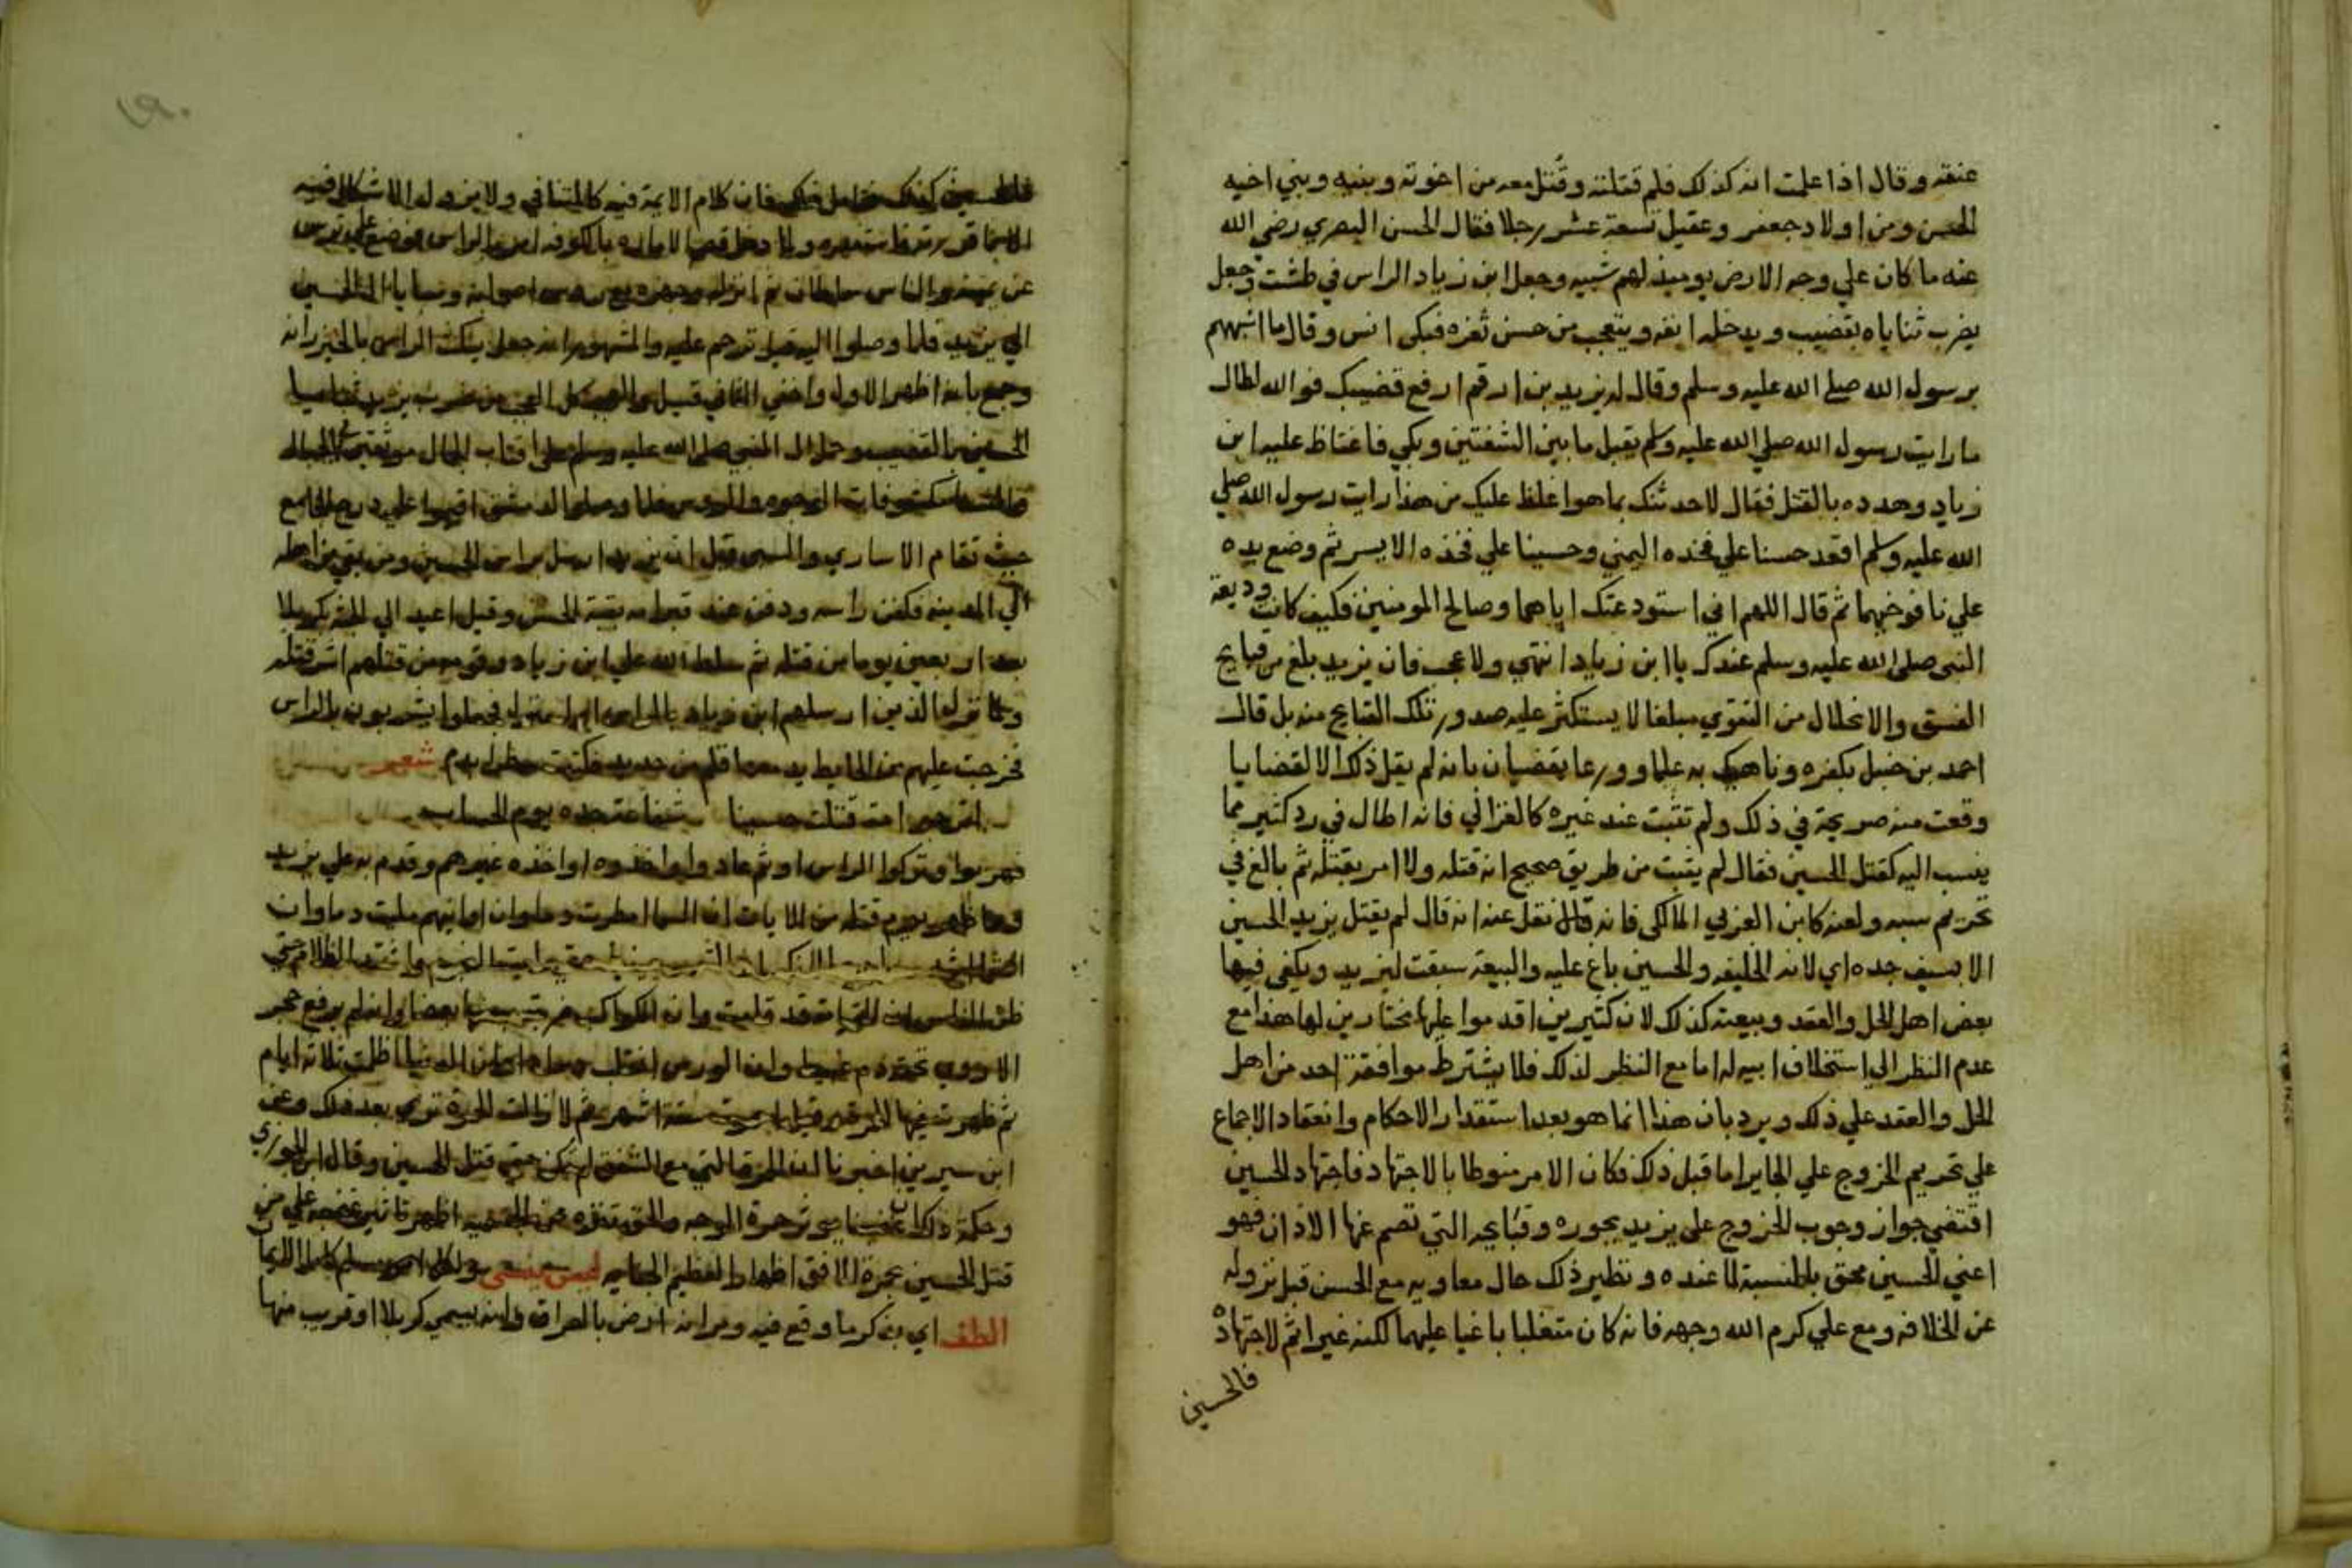 عنقه وقال اذا علمت انه كذلك فلم قتلته وقتل معه من اخوته وبنيه وبني اخيه
الحسن ومن اولاد جعفر وعقيل تسعة عشر رجلا فقال الحسن البصري رضي الله
عنه ما كان علي وجه الارض يوميذ لهم شبيه وجعل ابن زياد الراس في طشت وجعل
يضرب ثناياه بقضيب ويدخله انفه ويتعجب من حسن ثغره فبكى انس وقال ما اشبههم
برسول الله صلي الله عليه وسلم وقال له يزيد بن ارقم ارفع قضيبك فوالله لطال
ما رايت رسول الله صلي الله عليه وسلم يقبل ما بين الشفتين وبكي فاغتاظ عليه ابن
زياد وهدده بالقتل فقال لاحدثنك بما هو اغلظ عليك من هذا رايت رسول الله صلي
الله عليه وسلم اقعد حسنا علي فخذه اليمني وحسينا علي فخذه الايسر ثم وضع يده
علي نافوخيهما ثم قال اللهم اني استودعتك اياهما وصالح المومنين فكيف كانت وديعة
النبي صلي الله عليه وسلم عندك يا ابن زياد انتهي ولا عجب فان يزيد بلغ من قبايح
الفسق والانحلال من التقوي مبلغا لا يستكثر عليه صدور تلك القبايح منه بل قال
احمد بن حنبل بكفره وناهيك به علما وورعا يقضيان بانه لم يقل ذلك الا لقضايا
وقعت منه صريحة في ذلك ولم تثبت عند غيره كالغزالي فانه اطال في رد كثير مما
ينسب اليه كقتل الحسين فقال لم يثبت من طريق صحيح انه قتله ولا امر بقتله ثم بالغ في
تحريم سبه ولعنه كابن العربي المالكي فانه نقل عنه انه قال لم يقتل يزيد الحسين
الا بسيف جده اي لانه الخليفه والحسين باغ عليه والبيعة سبقت ليزيد ويكفي فيها
بعض اهل الحل والعقد وبيعته كذلك لان كثيرين اقدموا عليها مختارين لها هذا مع
عدم النظر الي استخلاف ابيه له اما مع النظر لذلك فلا يشترط موافقة احد من اهل
الحل والعقد علي ذلك ويرد بان هذا انما هو بعد استقرار الاحكام وانعقاد الاجماع
علي تحريم الخروج علي الجاير اما قبل ذلك فكان الامر منوطا بالاجتهاد فاجتهاد الحسين
اقتضي جواز وجوب الخروج علي يزيد بجوره وقبايحه التي تصم عنها الاذان فهو
اعني الحسين محق بالنسبة لما عنده ونظير ذلك حال معاويه مع الحسن قبل نزوله
عن الخلافه ومع علي كرم الله وجهه فانه كان متغلبا باغيا عليهما لكنه غير اثم لاجتهاده
فالحسين
فالحسين كذلك فان كلام الايمة فيه كالمتنافي ولا يزول الاشكال فيه
الا بما قررته ولما دخل قصر الاماره بالكوفه امر بالراس فوضع علي ترس
عن يمينه والناس سماطان ثم انزله وجهزه مع روس اصحابه وسبايا ال الحسين
الي يزيد فلما وصلوا اليه قيل ترحم عليه والمشهور انه جعل ينكث الراس بالخيزرانه
وجمع بانه اظهر الاول واخفي الثاني قيل والعجب كل العجب من ضرب يزيد ثنايا
الحسين بالقضيب وحمل ال النبي صلي الله عليه وسلم علي اقتاب الجمال موثقين بالحبال
فلما وصلوا دمشق اقيموا علي درج الجامع
حيث تقام الاساري والسبي وقيل ان يزيد ارسل براس الحسين ومن بقي من اهله
الي المدينه فكفن راسه ودفن عند قبر امه بقبة الحسن وقيل اعيد الي الجثة بكربلا
بعد اربعين يوما من قتله ثم سلط الله علي ابن زياد وقومه من قتلهم اشر قتله
ولما نزل الذين ارسلهم ابن زياد بالراس فجعلوا يشربون بالراس
فخرجت عليهم من الحايط يد معها قلم من حديد فكتبت سطرا بدم شعر
اترجو امة قتلت حسينا شفاعة جده يوم الحساب
فهربوا وتركوا الراس او ثم عادوا واخذوه او اخذه غيرهم وقدم به علي يزيد
ومما ظهر يوم قتله من الايات ان السما امطرت دما وان اوانيهم مليت دما وان
السما واشتد الظلام حتي
ظن الناس ان القيامة قد قامت وان الكواكب ضربت بعضها بعضا وانه لم يرفع حجر
الا رووي تحته دم عبيط وان الورس انقلب وان الدنيا اظلمت ثلاثة ايام
ثم ظهرت فيها الحمرة ستة اشهر ثم لا زالت الحمرة تري بعد ذلك وعن
ابن سيرين اخبرنا ان الحمرة التي مع الشفق لم تكن حتي قتل الحسين وقال ابن الجوزي
وحكمة ذلك ان غضبنا يوثر حمرة الوجه والحق تنزه عن الجسميه اظهر تاثير غضبه علي من
قتل الحسين بحمرة الافق اظهارا لعظيم الجنايه ليس ينسي
الطف اي يذكر ما وقع فيه ومر انه ارض بالعراق وانه يسمي كربلا او قريب منها